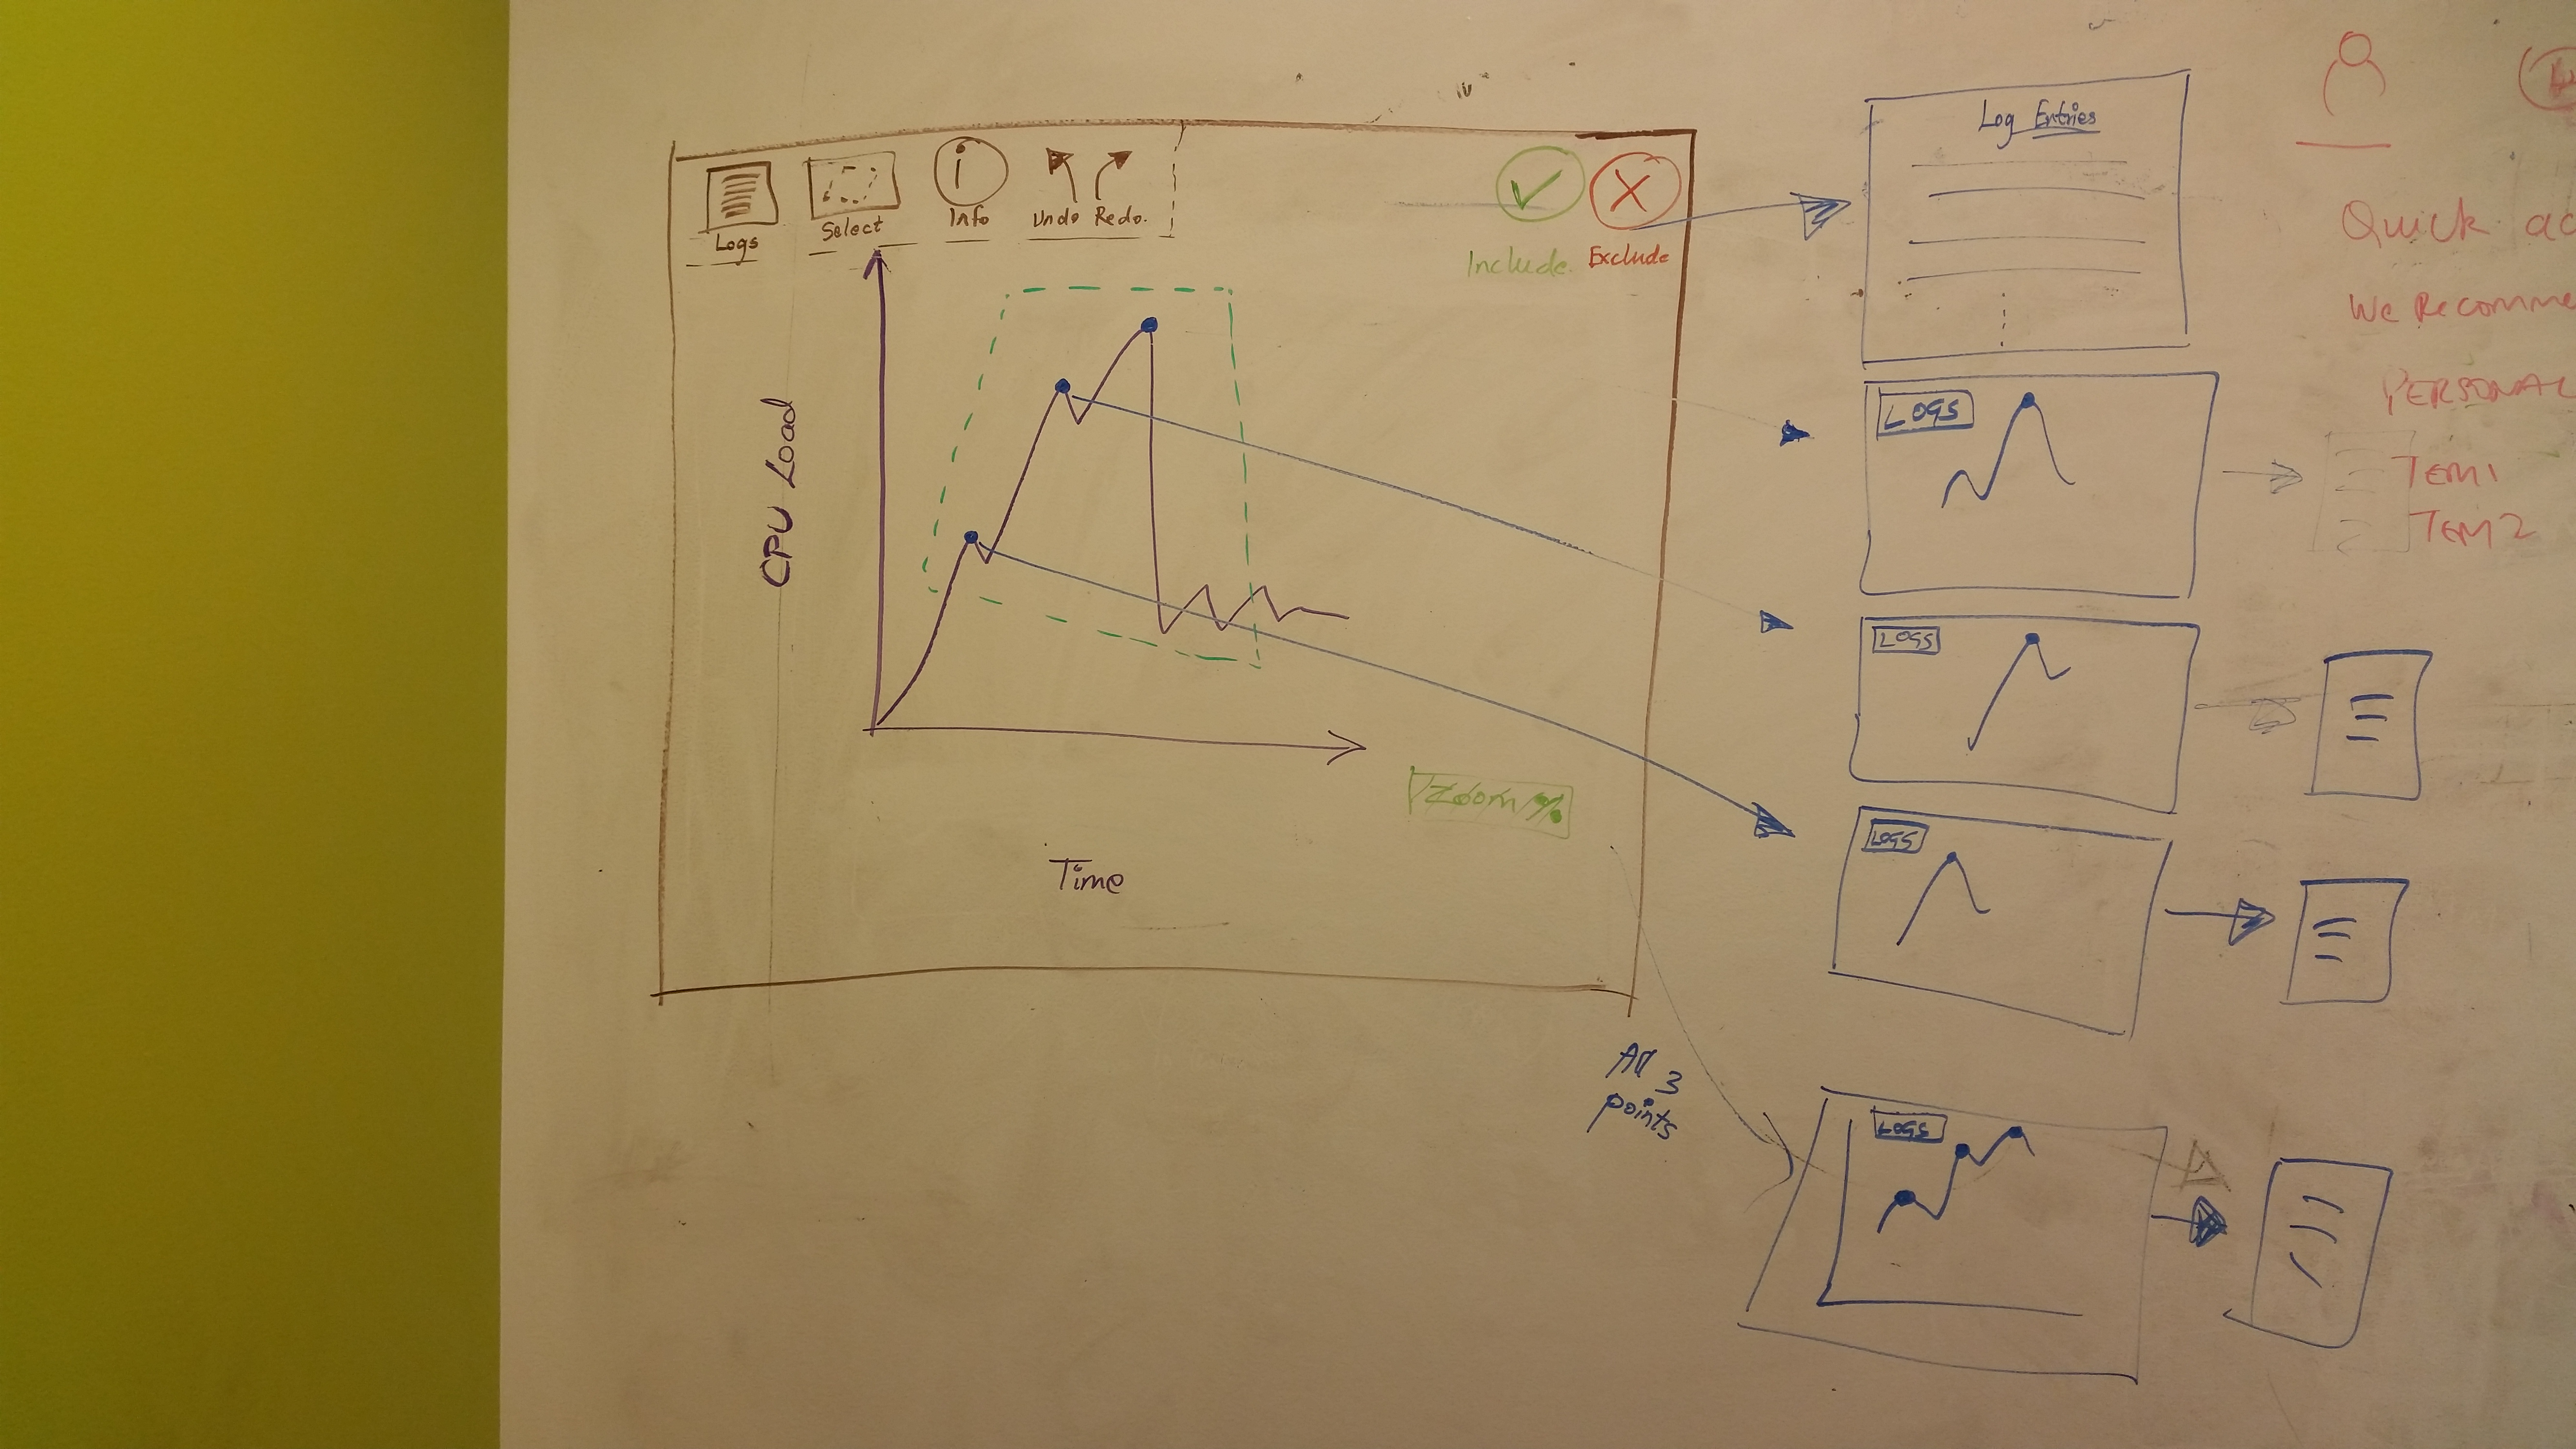 Logs
Select
Info
Undo Redo.
Include.
Exclude
CPU Load
Time
Zoom %
Log Entries
LOGS
LOGS
LOGS
All 3
points
LOGS
Quick ac
We Recomme
PERSONAL
TEM1
TEM2